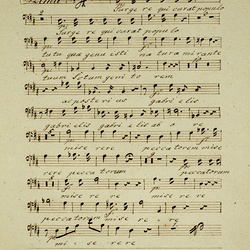 Surge re qui curat populo
Surge re qui curat populo
tu tu quae genu isti na tura mirante
tuum Sctam geni to rem
ac posteri us gabri elis
gabri elis gabri elis ab o re
mise rere peccatorum mise
rere peccatorum peccatorum
mise re re mise re re
peccatorum mise re re
mi - se rere